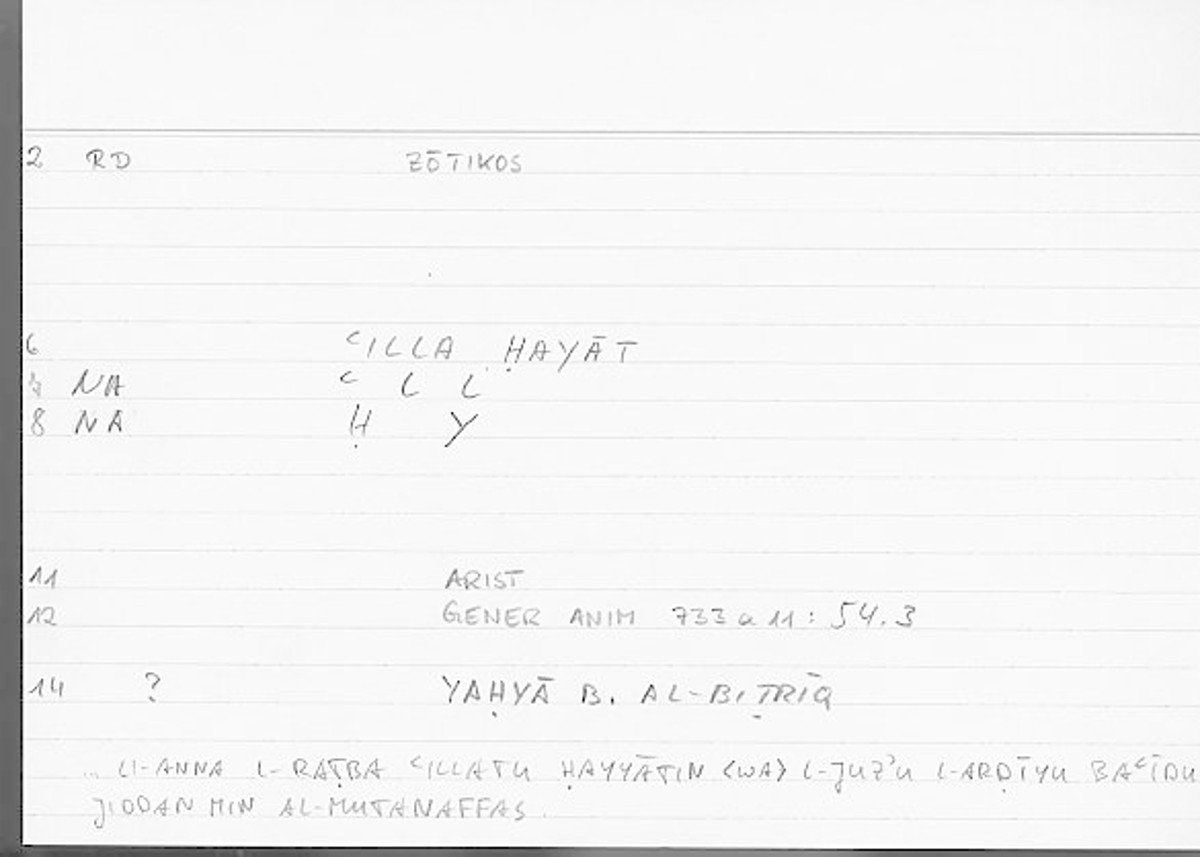 2 RD ZŌTIKOS
6 ʿILLA ḤAYĀT
7 NA ʿ L L
8 NA Ḥ Y
11 ARIST
12 GENER ANIM 733 a 11 : 54.3
14 ? YAḤYĀ B. AL-BIṬRĪQ
... LI-ANNA L-RAṬBA ʿILLATU ḤAYYĀTIN <WA> L-JUZʾU L-ARḌĪYU BAʿĪDU
JIDDAN MIN AL-MUTANAFFAS.